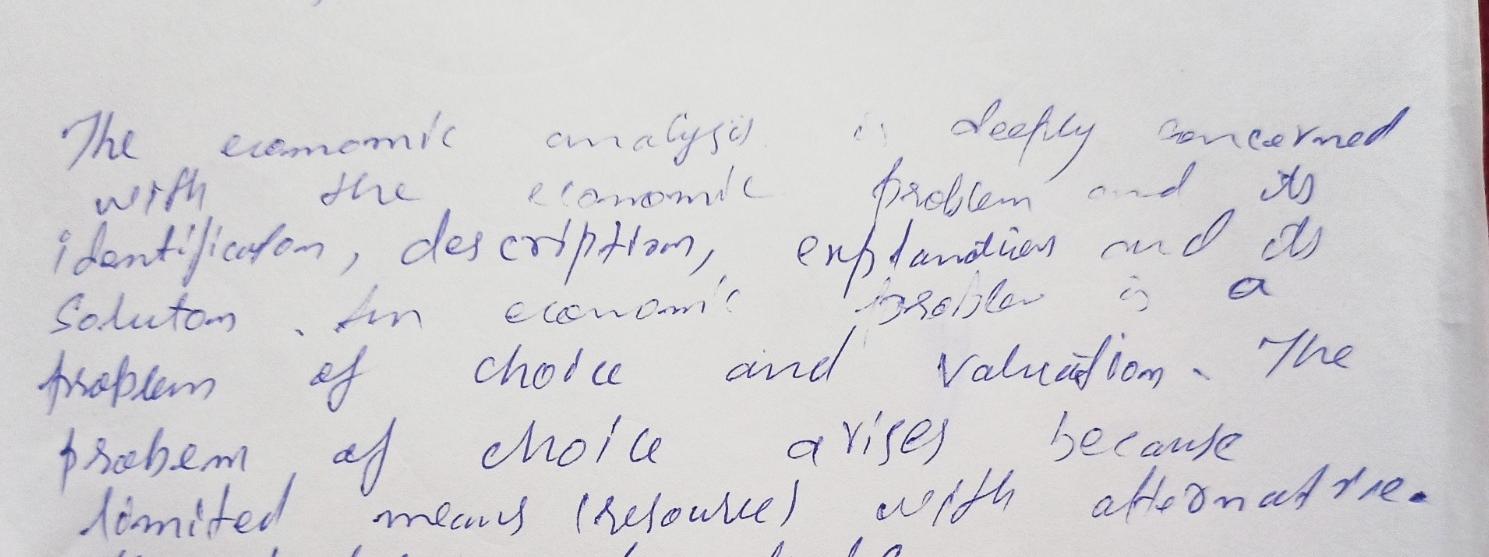 The economic analysis is deeply concerned
with the economic problem and its
identification, description, explanation and its
Soluton. An economic problem is a
problem of choice and valuation. The
probem of choice arises because
limited means (resources) with alternative.